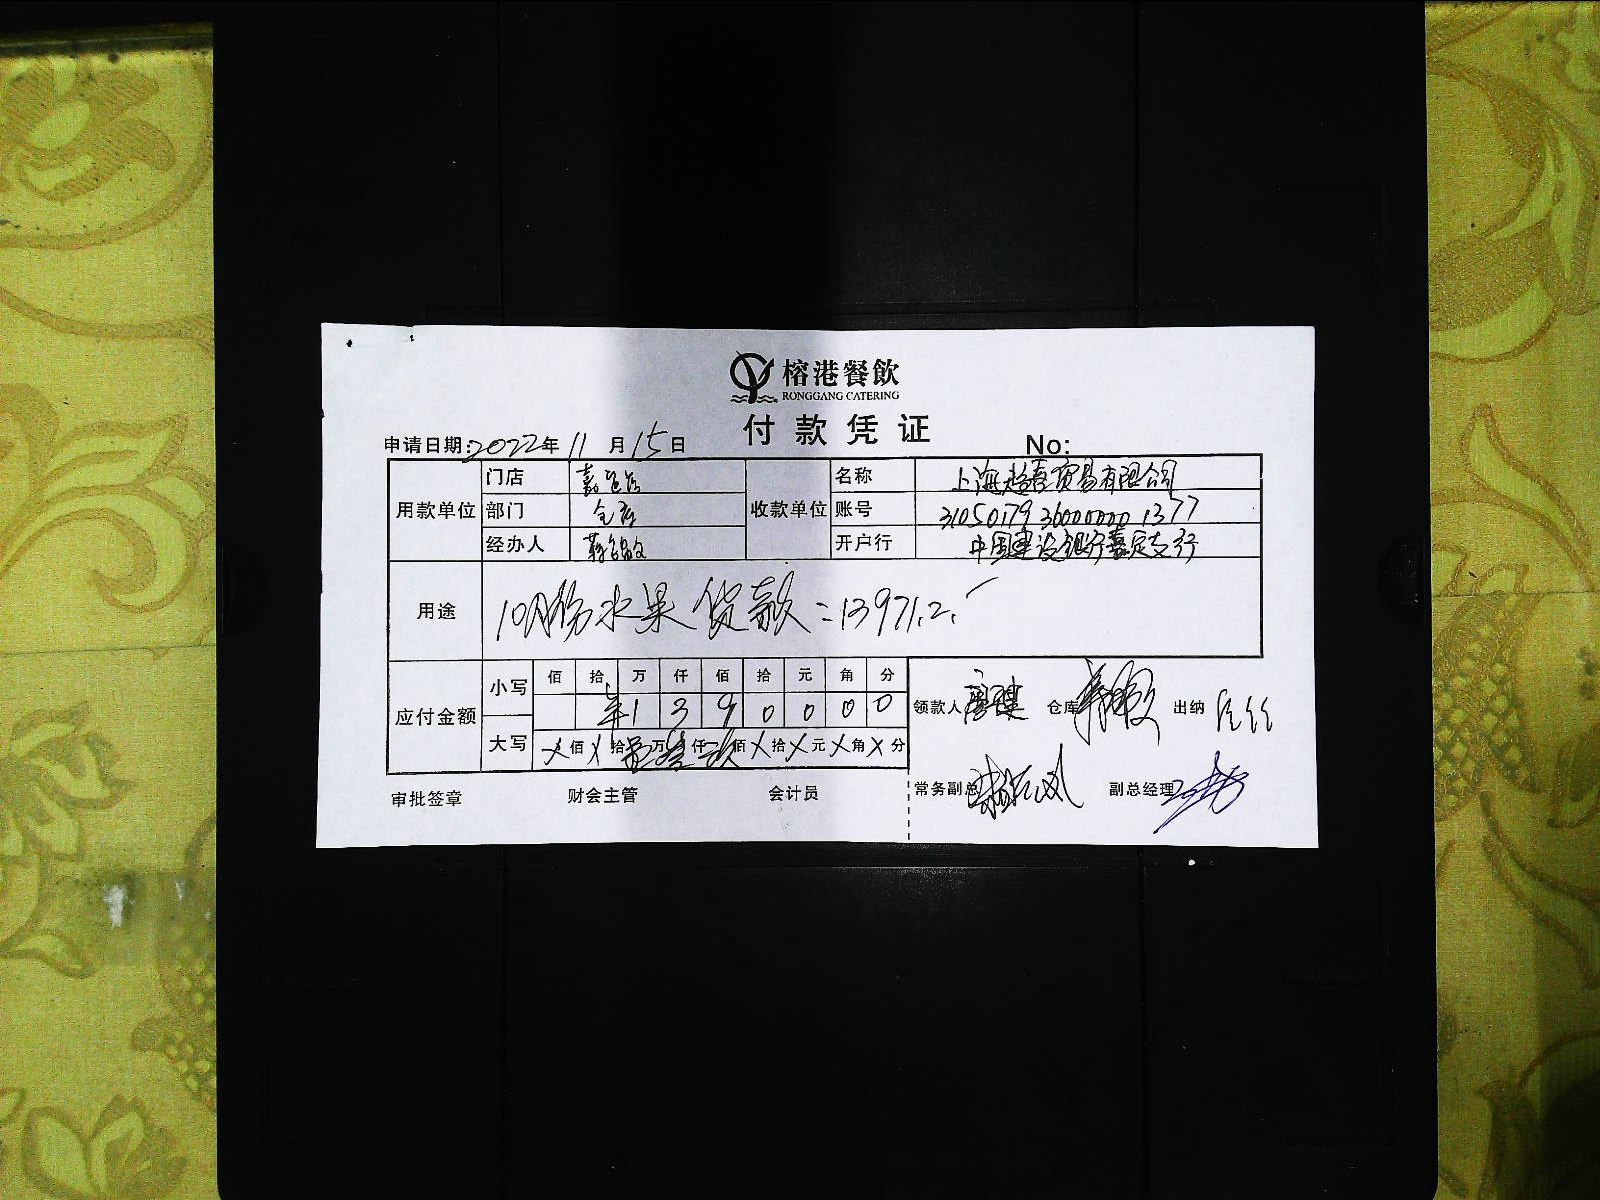 榕港餐飲
RONGGANG CATERING
付款凭证
申请日期:2022年11月15日
No:
用款单位 门店 收款单位 名称 上海越喜贸易有限公司
部门 仓库 账号 31050179 36000000 1377
经办人 开户行 中国建设银行嘉定支行
用途 10月份水果货款:13971.2.
应付金额 小写 佰 拾 万 仟 佰 拾 元 角 分
1 3 9 0 0 0 0
大写 X佰X拾壹万叁仟玖佰X拾X元X角X分
领款人 仓库 出纳
常务副总 副总经理
审批签章 财会主管 会计员